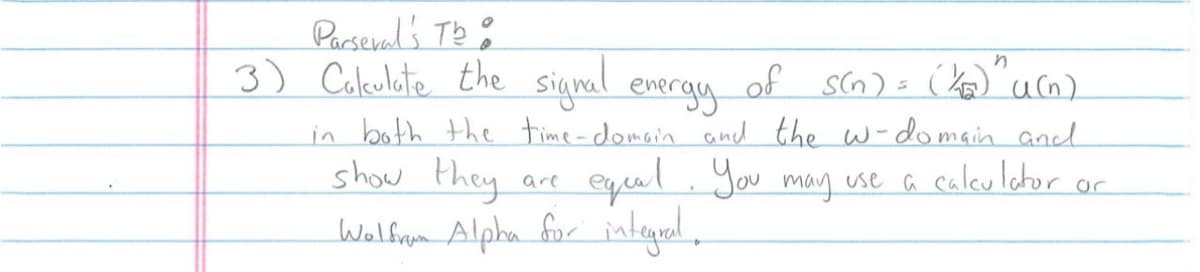 Parseval's Th :
3) Calculate the signal energy of s(n) = (1/√2)^n u(n)
in both the time-domain and the w-domain and
show they are equal. You may use a calculator or
Wolfram Alpha for integral.